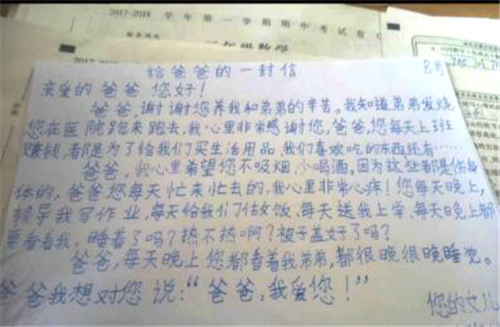 2017-2018 学年第一学期期中考试卷
二年级数学
给爸爸的一封信
8号
亲爱的爸爸 您好！
爸爸,谢谢您养我和弟弟的辛苦。我知道弟弟发烧
您在医院跑来跑去,我心里非常感谢您,爸爸,您每天上班
赚钱,都是为了给我们买生活用品,我们喜欢吃的东西还有……
爸爸,我心里希望您不吸烟,少喝酒,因为这些都是伤身
体的,爸爸,您每天忙来忙去的,我心里非常心疼！您每天晚上,
辅导我写作业,每天给我们做饭,每天送我上学,每天晚上都
要看看我,睡着了吗？热不热啊？被子盖好了吗？
爸爸,每天晚上您都看着我弟弟,都很晚很晚睡觉。
爸爸我想对您说:“爸爸,我爱您！”
您的女儿